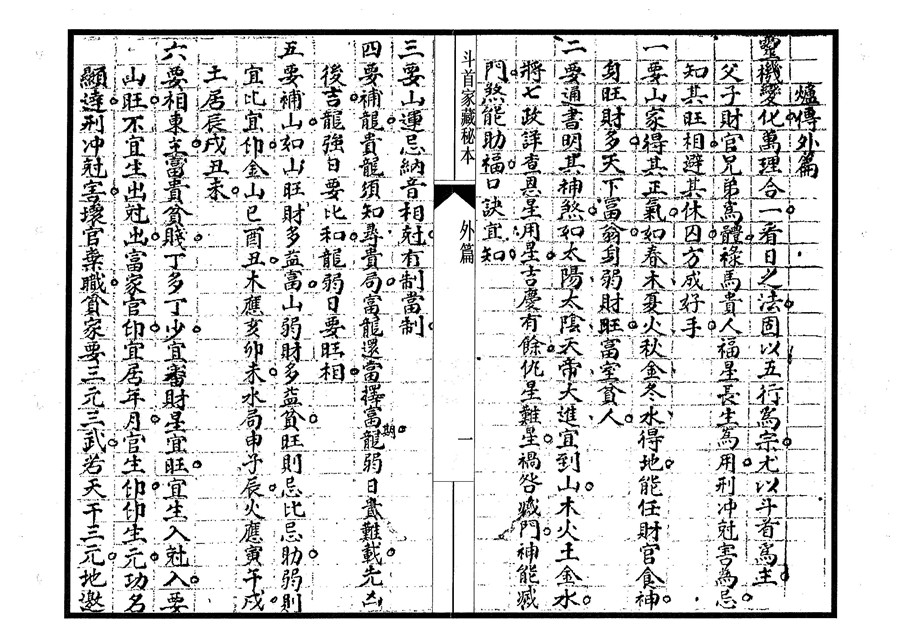 爐傳外篇
靈機變化萬理合一看日之法固以五行為宗尤以斗首為主
父子財官兄弟為體祿馬貴人福星長生為用刑冲尅害為忌
知其旺相避其休囚方成好手
一要山家得其正氣如春木夏火秋金冬水得地能任財官食神
身旺財多天下富翁身弱財旺富室貧人
二要通書明其神煞如太陽太陰天帝大進宜到山木火土金水
將七政詳查恩星用星吉慶有餘仇星難星禍咎臧門神能臧
門煞能助福口訣宜知
斗首家藏秘本
外篇
一
三要山運忌納音相尅有制當制
四要補龍貴龍須知尋貴局富龍還富擇富龍弱日貴難載先凶
期
後吉龍強日要比和龍弱日要旺相
五要補山如山旺財多益富山弱財多益貧旺則忌比忌助弱則
宜比宜仰金山巳酉丑木應亥卯未水局申子辰火應寅午戌
土居辰戌丑未
六要相東主富貴貧賤丁多丁少宜審財星宜旺宜生入尅入要
山旺不宜生出尅出富家官印宜居年月官生仰仰生元功名
顯達刑冲尅害壞官棄職貧家要三元三武若天干三元地邀